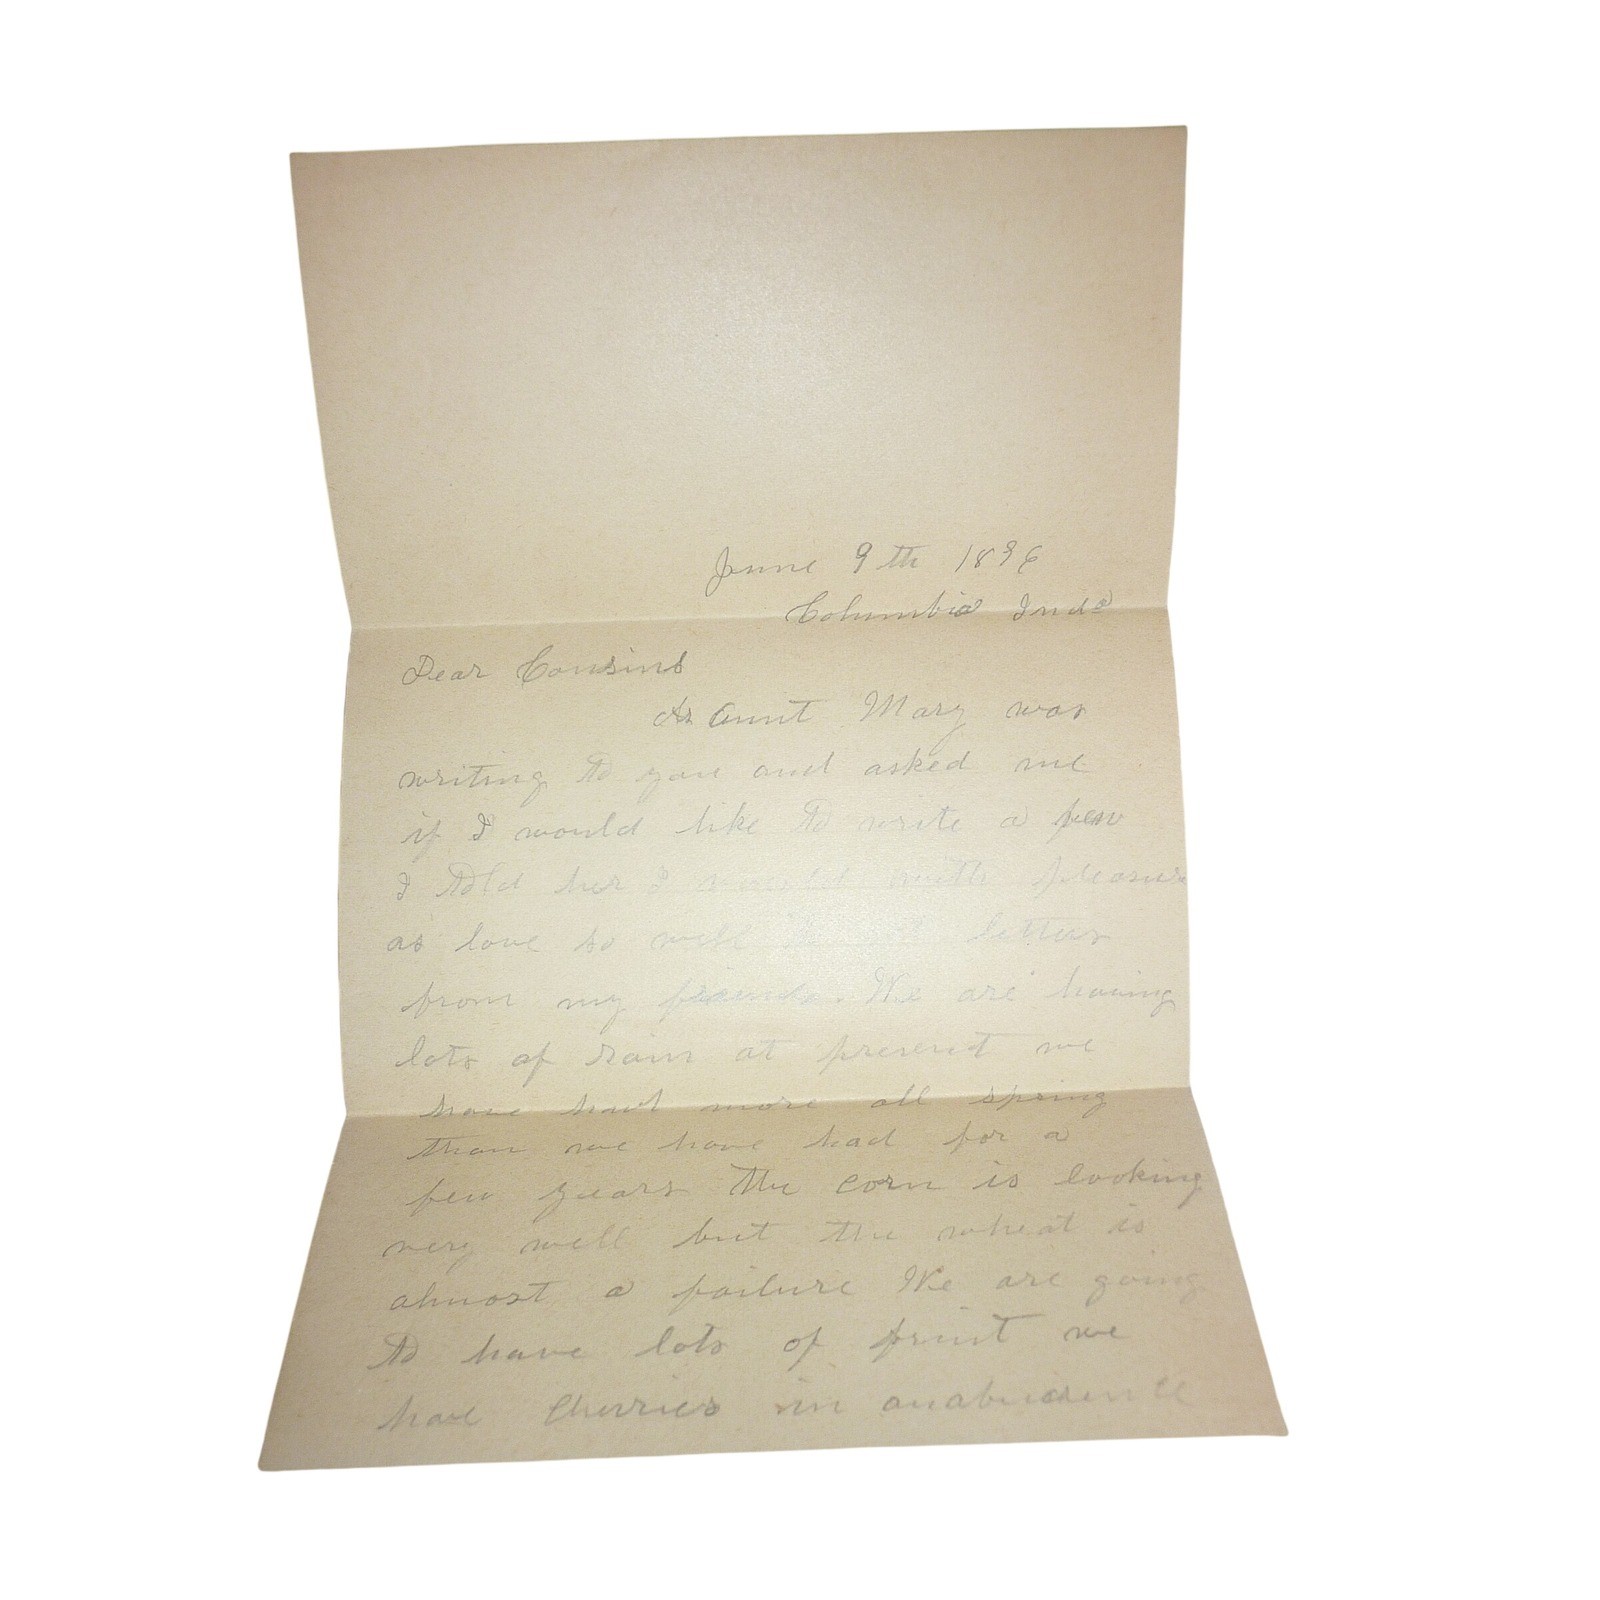 June 9th 1896
Columbia Inda
Dear Cousins
As Aunt Mary was
writing to you and asked me
if I would like to write a few
I told her I would with pleasure
as love so well letters
from my friends. We are having
lots of rain at present we
have had more all spring
than we have had for a
few years The corn is looking
very well but the wheat is
almost a failure We are going
to have lots of fruit we
have Cherries in anabundence